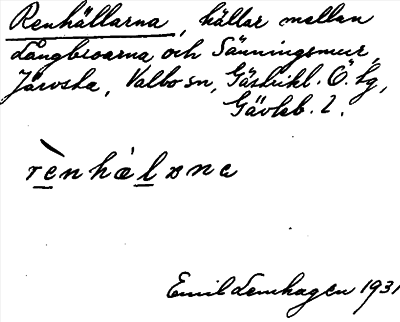 Renhällarna, hällar mellan
Långbroarna och Sänningsmur,
Järvsta, Valbo sn, Gästrikl. Ö. tg,
Gävleb. l.
rènhàlana
Emil Lemhagen 1931